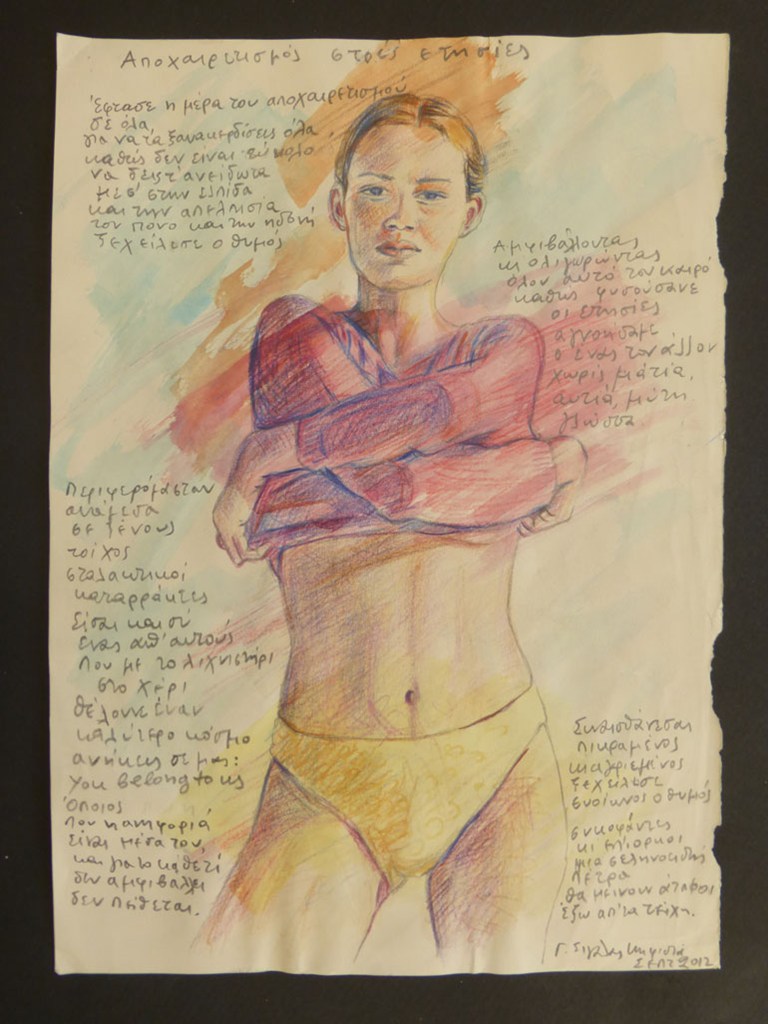 Αποχαιρετισμός στους ετησίες
Έφτασε η μέρα του αποχαιρετισμού
σε όλα,
για να τα ξανακερδίσεις όλα,
καθώς δεν είναι εύκολο
να δεις τ' ανείδωτα
μεσ' στην ελπίδα
και την απελπισία
τον πόνο και την ηδονή
ξεχείλισε ο θυμός
Αμφιβάλλοντας
κι ολιγωρώντας
όλον αυτό τον καιρό
καθώς φυσούσανε
οι ετησίες
αγνοηθαμε
ο ένας τον άλλον
χωρίς μάτια,
αυτιά, μύτη
γλώσσα
Περιφερόμασταν
ανάμεσα
σε ξένους
τοίχος
σταλακτικοί
καταρράκτες
Είσαι και συ
ένας απ' αυτούς
που με το λιχνιστήρι
στο χέρι
θέλουνε έναν
καλύτερο κόσμο
ανήκεις σε μας:
You belong to us
Όποιος
που κατηγοριά
είναι μέσα του,
και για το καθετί
δεν αμφιβάλλει
δεν πείθεται.
Συναισθάνεσαι
πικραμένος
κι αγριεμένος
ξεχείλισε
ενοίωνος ο θυμός
συκοφάντες
κι επίορκοι
μια σεληνοειδής
πέτρα
θα μείνουν άταφοι
έξω απ' τα τείχη.
Γ. Κηφισιά
Σεπτ 2012